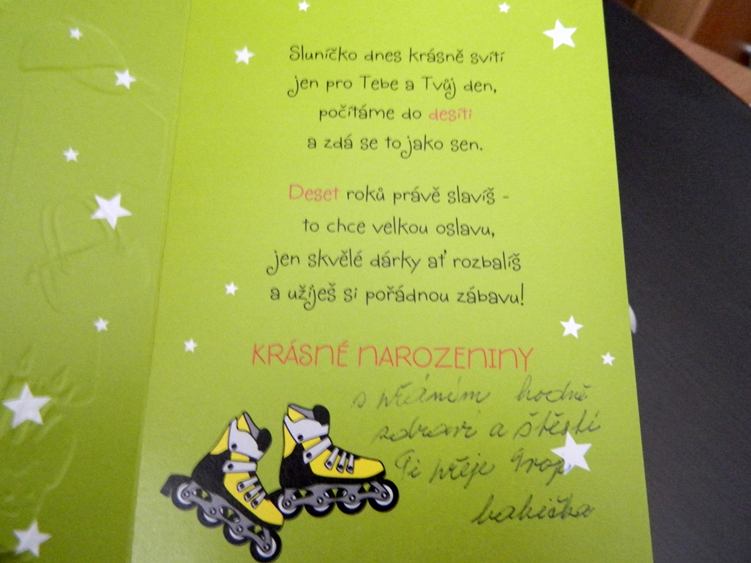 Sluníčko dnes krásně svítí
jen pro Tebe a Tvůj den,
počítáme do desíti
a zdá se to jako sen.
Deset roků právě slavíš -
to chce velkou oslavu,
jen skvělé dárky ať rozbalíš
a užiješ si pořádnou zábavu!
KRÁSNÉ NAROZENINY
s přáním hodně
zdraví a štěstí
Ti přeje
babička